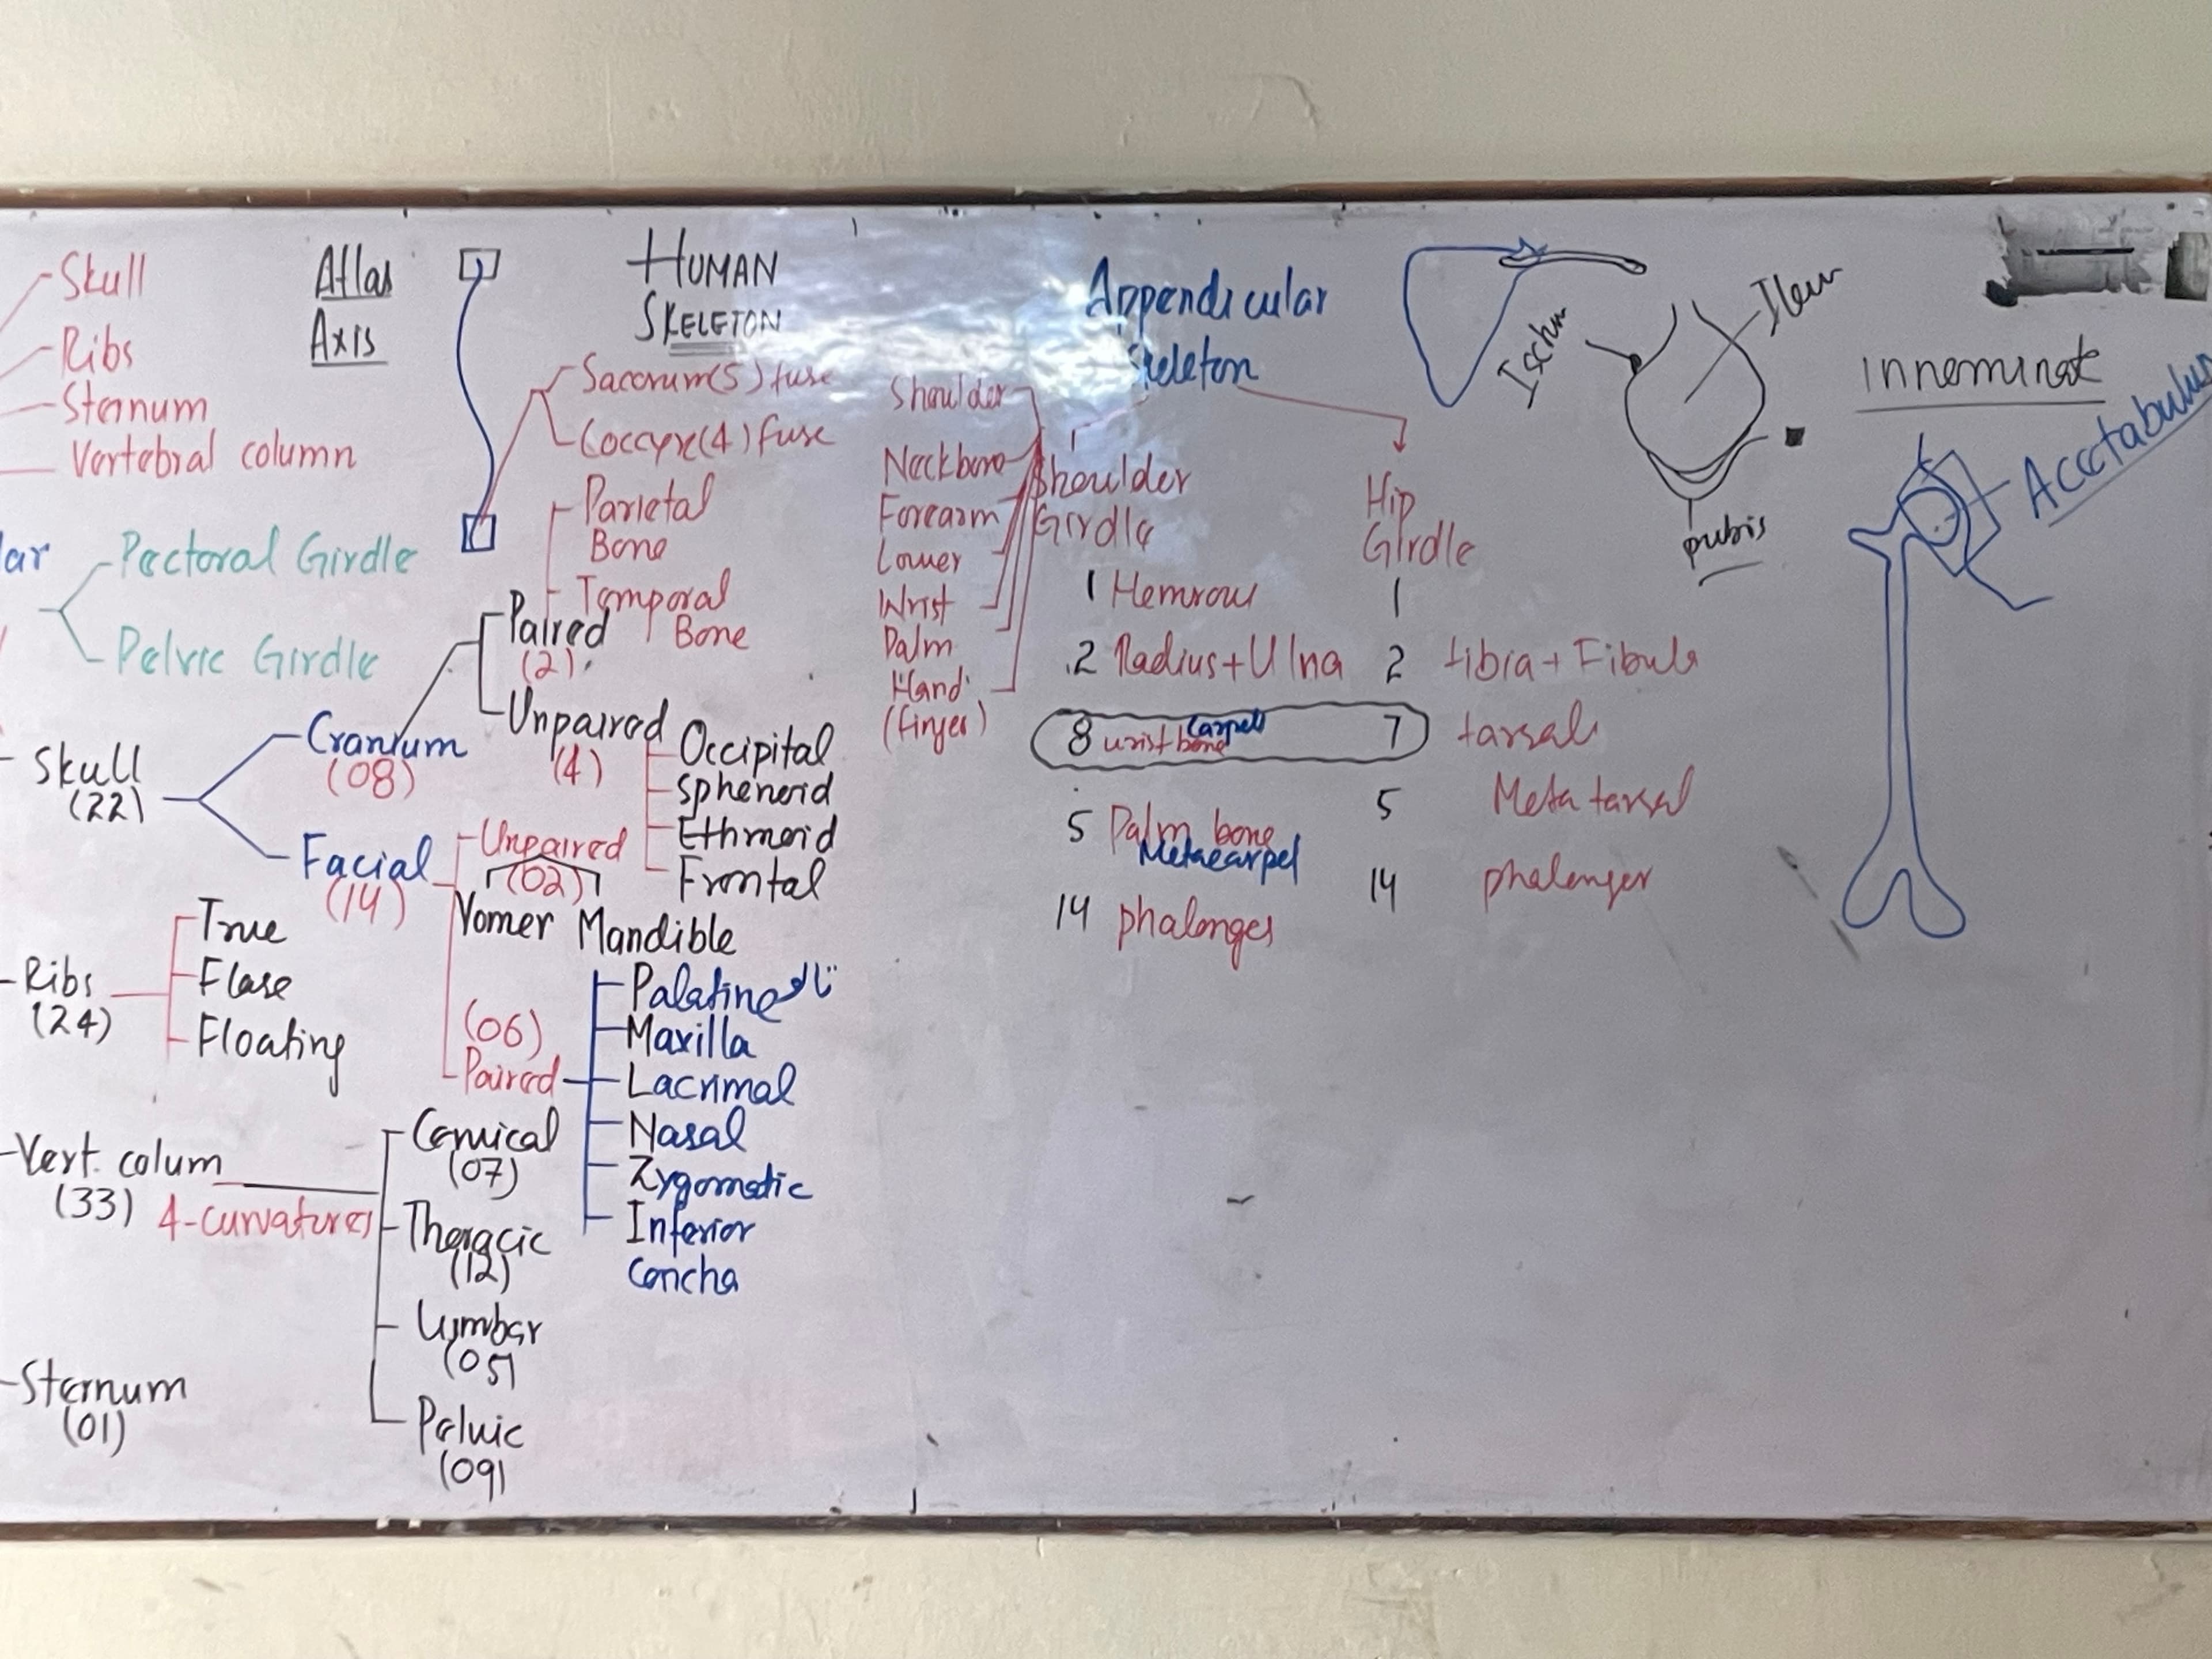 Skull
Ribs
Sternum
Vertebral column
Atlas
Axis
HUMAN
SKELETON
Saccrum(5) fuse
Coccyx(4) fuse
lar
Pectoral Girdle
Pelvic Girdle
Parietal
Bone
Temporal
Bone
Skull
(22)
Cranium
(08)
Paired
(2)
Unpaired
(4)
Occipital
Sphenoid
Ethmoid
Frontal
Facial
(14)
Unpaired
(02)
Vomer Mandible
(06)
Paired
Palatine
Maxilla
Lacrimal
Nasal
Zygomatic
Inferior
Concha
Ribs
(24)
True
Flase
Floating
Vert. colum
(33)
4-curvatures
Cervical
(07)
Thoracic
(12)
Lumbar
(05)
Pelvic
(09)
Sternum
(01)
Appendicular
Skeleton
Shoulder
Neckbone
Forearm
Lower
Wrist
Palm
Hand
(finger)
Shoulder
Girdle
1 Hemrous
2 Radius+Ulna
8 wrist bone
Carpell
5 Palm bone
Metaecarpel
14 phalonges
Hip
Girdle
1
2 tibia + Fibula
7 tarsals
5 Meta tarsal
14 phalenger
Ischm
Ileum
pubis
Innominat
Accetabulus